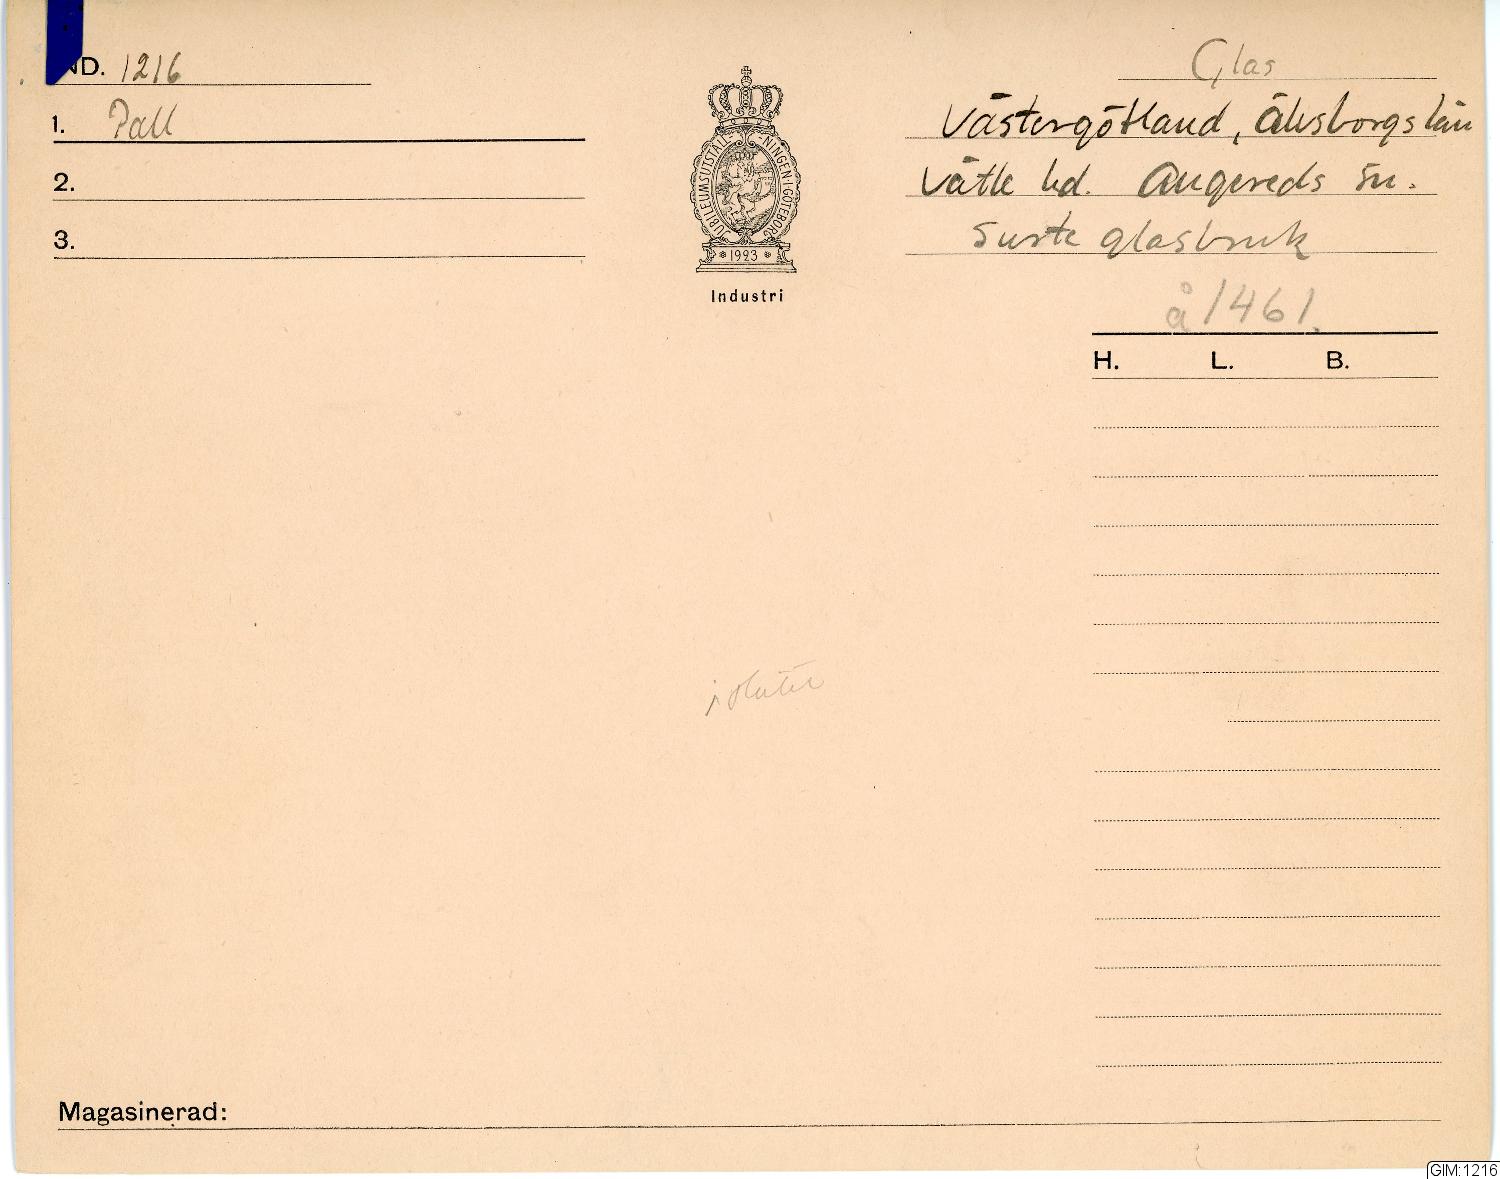 IND. 1216
Glas
1. Pall
Västergötland, Älvsborgs län
2.
Vätle hd. Angereds sn.
3.
Surte glasbruk
JUBILEUMSUTSTÄLLNINGEN I GÖTEBORG
1923
Industri
å 1461.
H. L. B.
Magasinerad:
GIM:1216